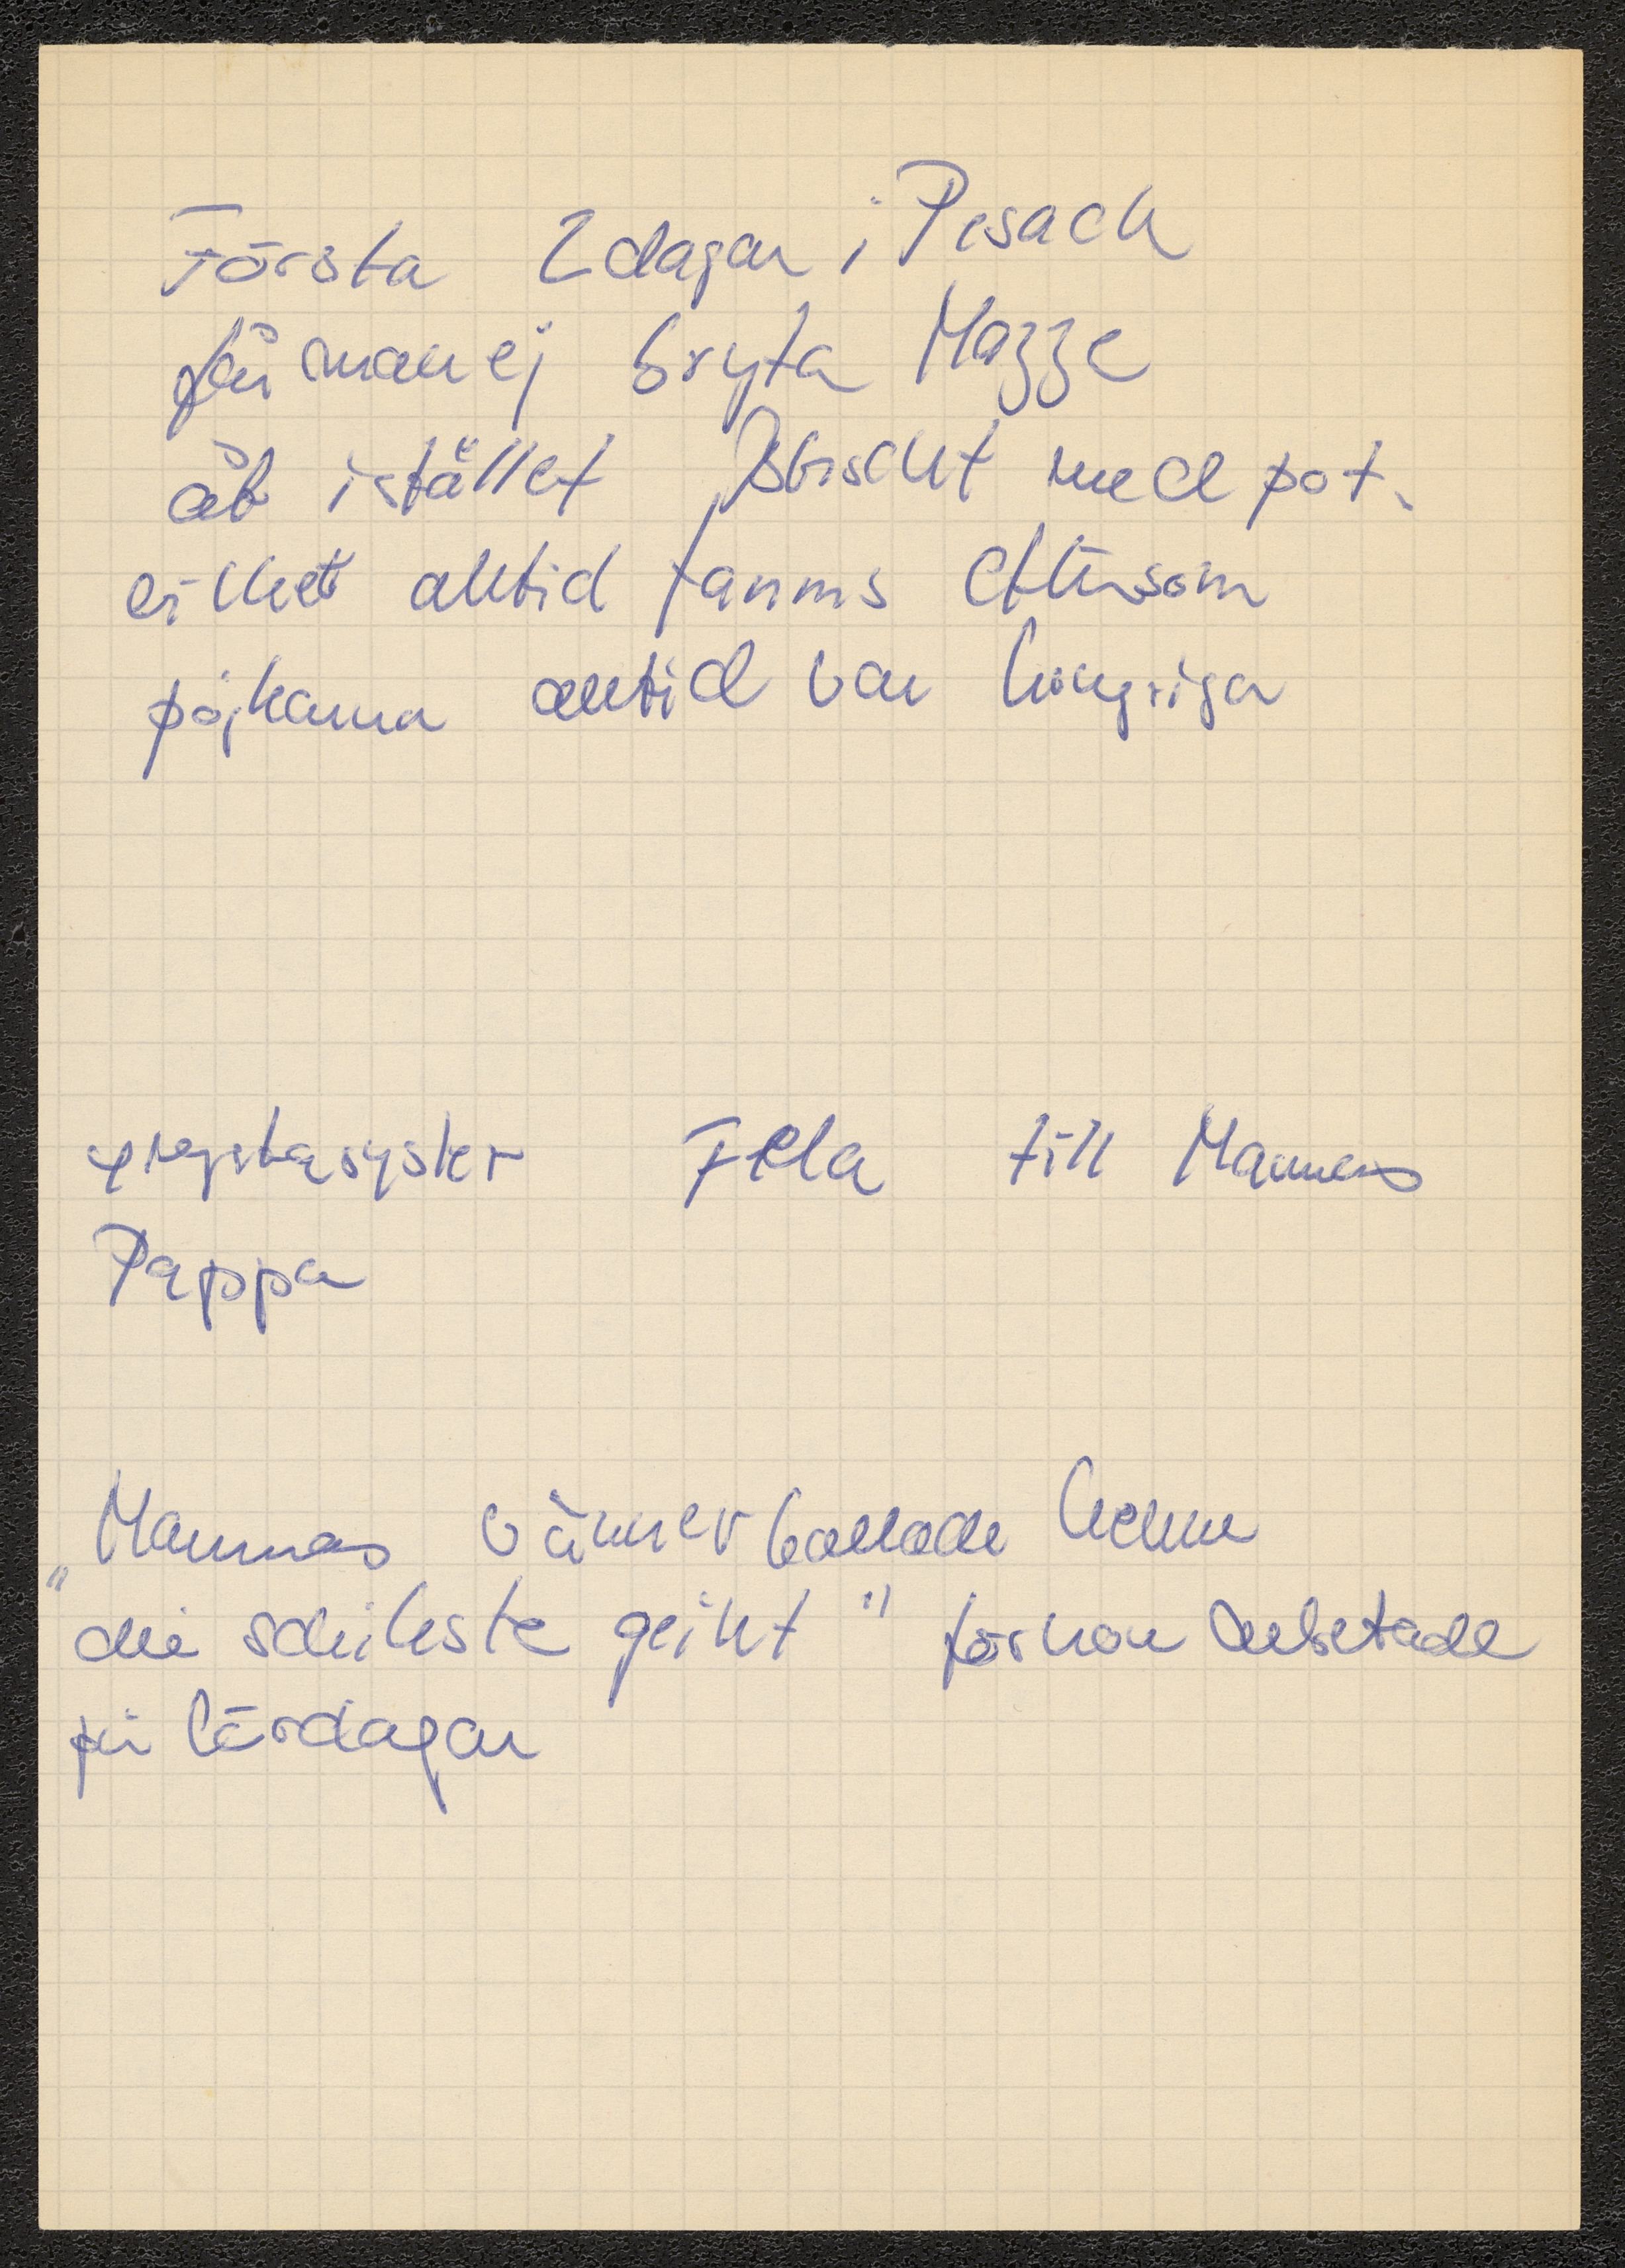 Första 2 dagar i Pesach
får man ej bryta Mazze
åt istället Borscht med pot.
vilket alltid fanns eftersom
pojkarna alltid var hungriga
yngsta syster Fela till Mammas
Pappa
Mammas vänner kallade henne
"die scheikste geiht" för hon arbetade
på lördagar